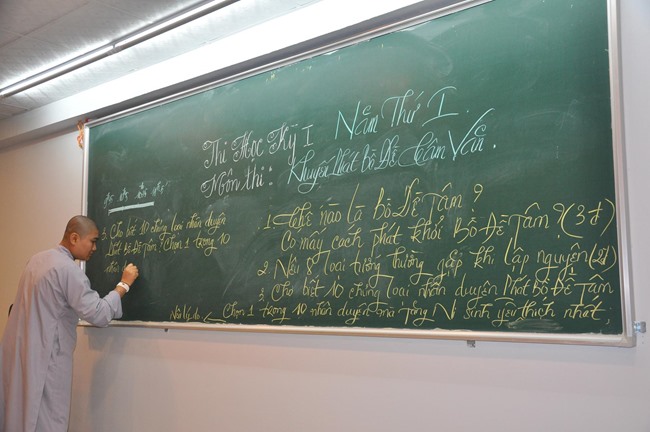 Thi Học Kỳ I Năm Thứ I.
Môn thi: Khuyến Phát Bồ Đề Tâm Văn.
1. Cho biết 10 chủng loại nhân duyên
Phát Bồ Đề Tâm? Chọn 1 trong 10
nhân
1. Thế nào là Bồ Đề Tâm?
Có mấy cách phát khởi Bồ Đề Tâm? (3đ)
2. Nêu 8 loại tướng thường gặp khi lập nguyện (2đ)
3. Cho biết 10 chủng loại nhân duyên Phát Bồ Đề Tâm
Nói lý do Chọn 1 trong 10 nhân duyên mà Tăng Ni sinh yêu thích nhất,